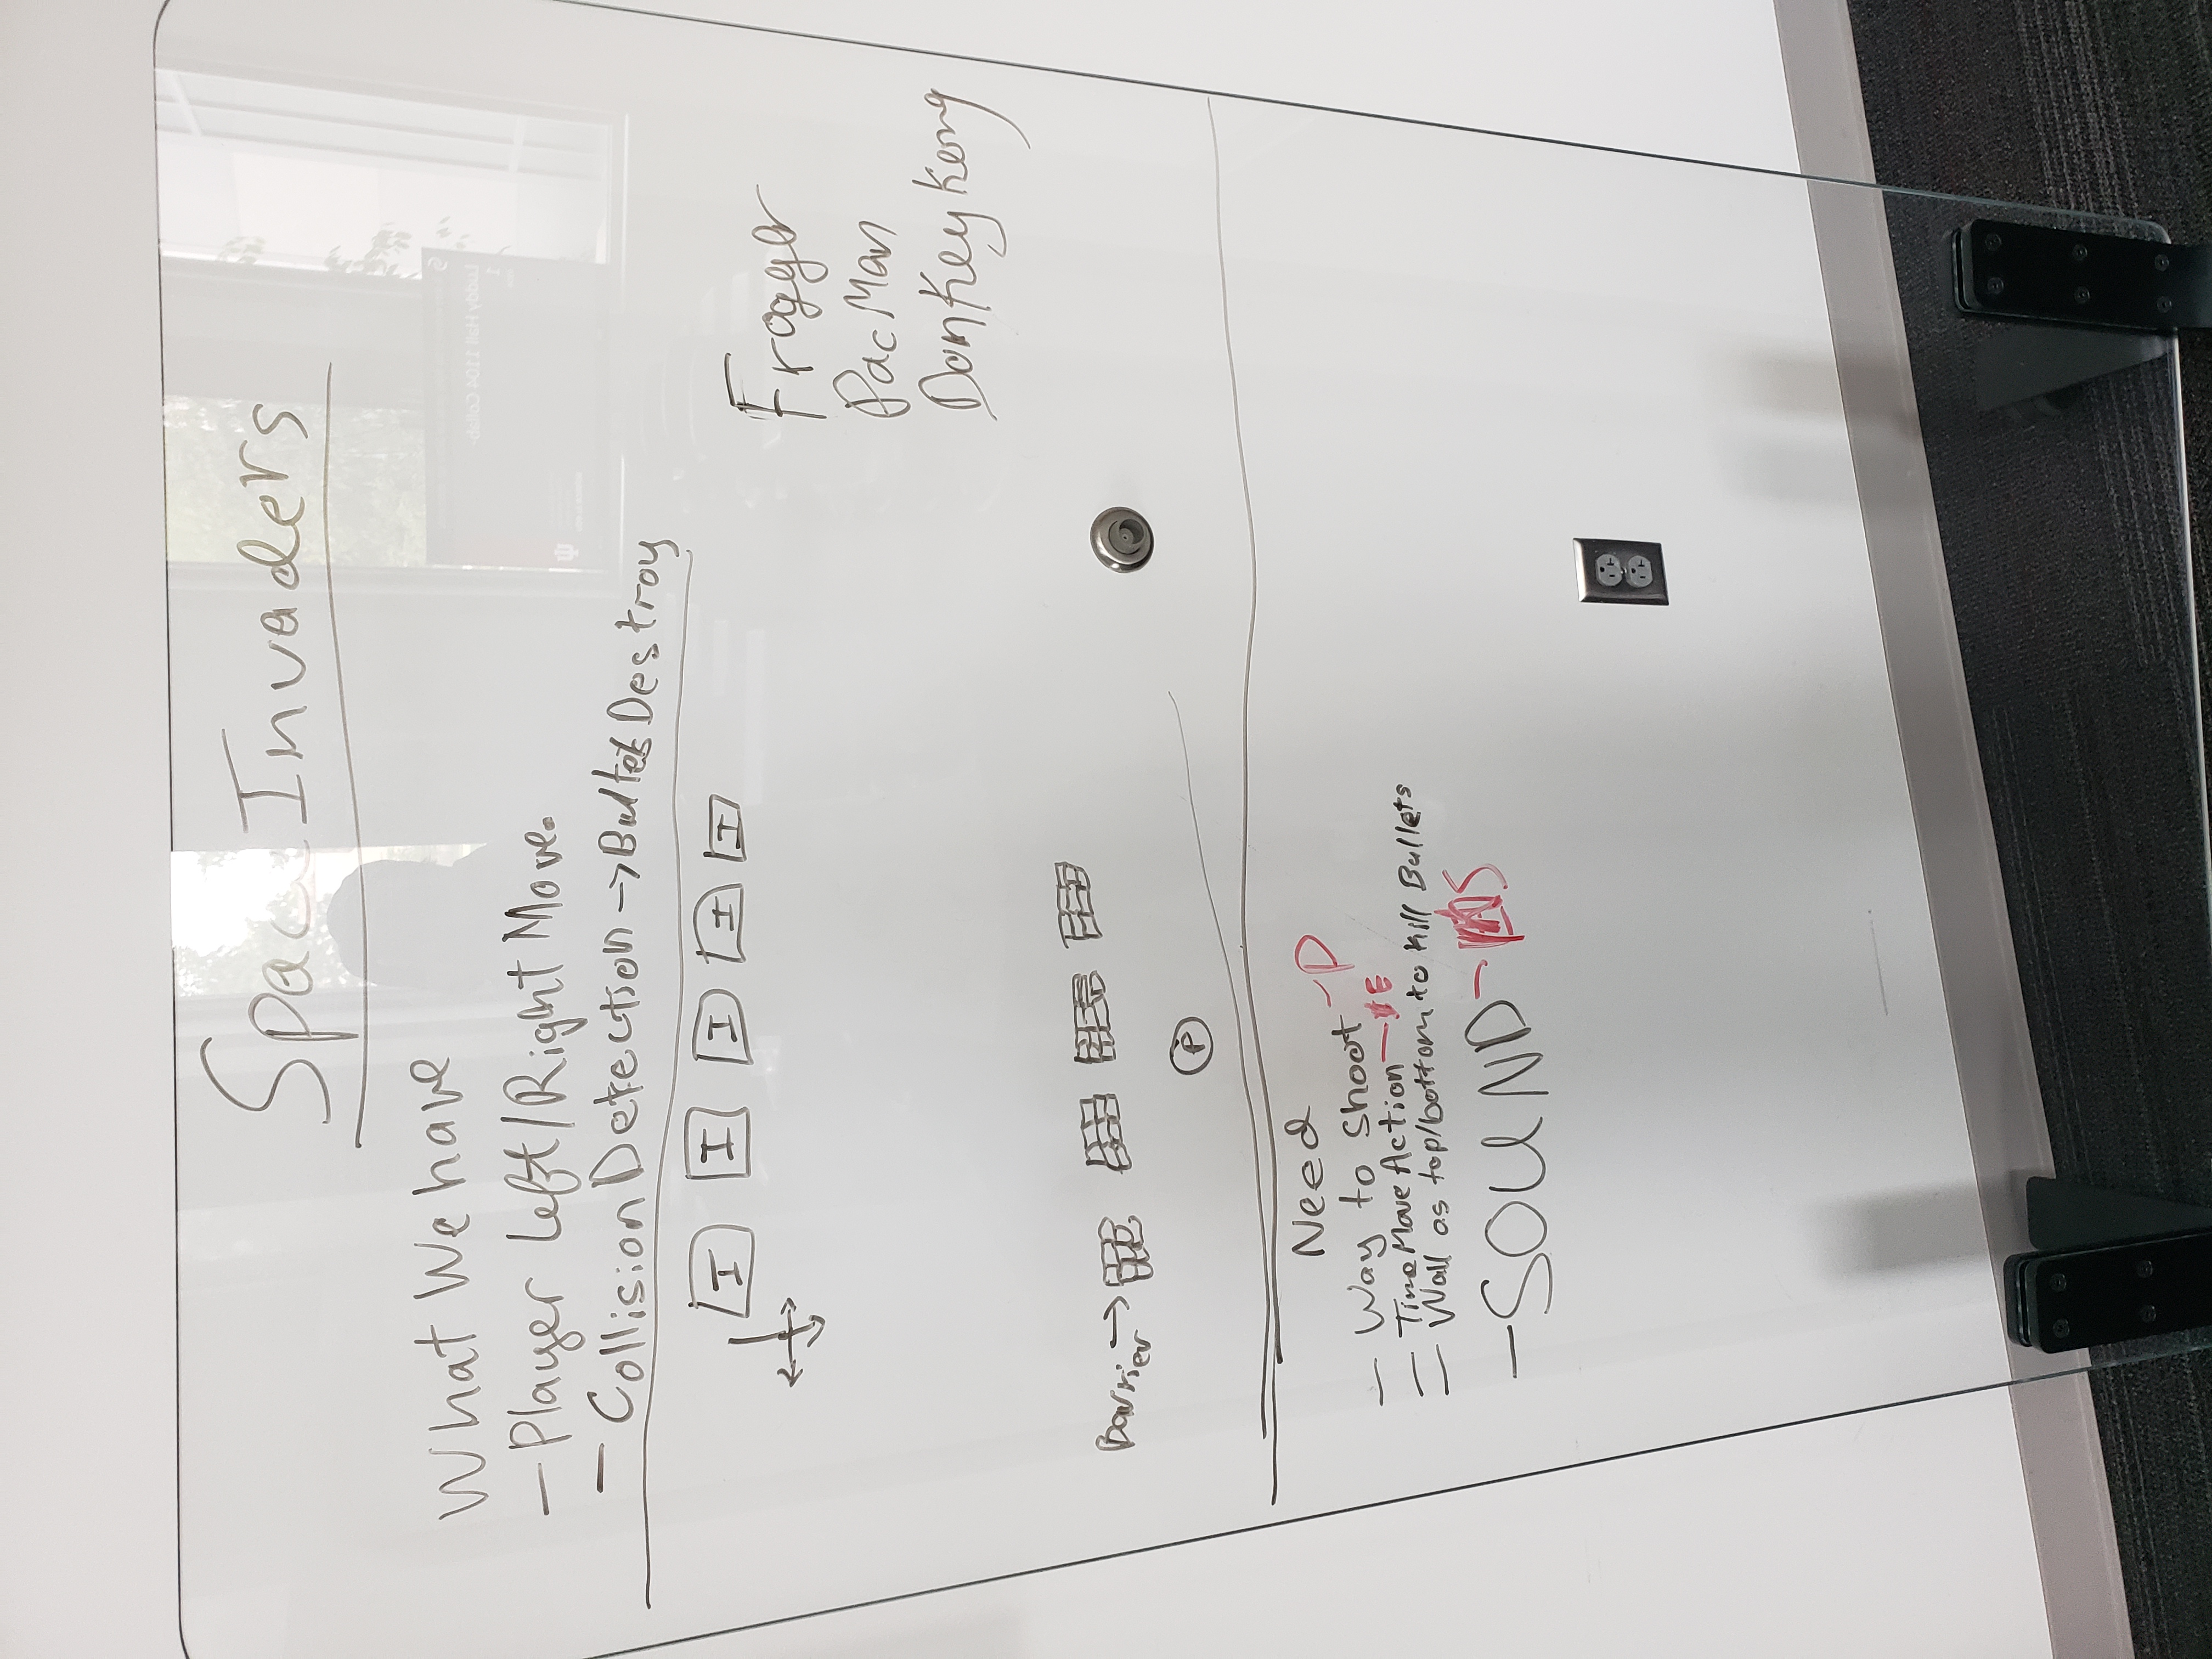 Space Invaders
What We have
- Player Left/Right Move.
- Collision Detection → Bullets Destroy
I I I I I
Frogger
Pac Man
Donkey Kong
Barrier →
P
Need
- Way to Shoot - P
- Time Move Action - E
- Wall as top/bottom to kill Bullets
- SOUND - S
Luddy Hall 1104 Collab-
1